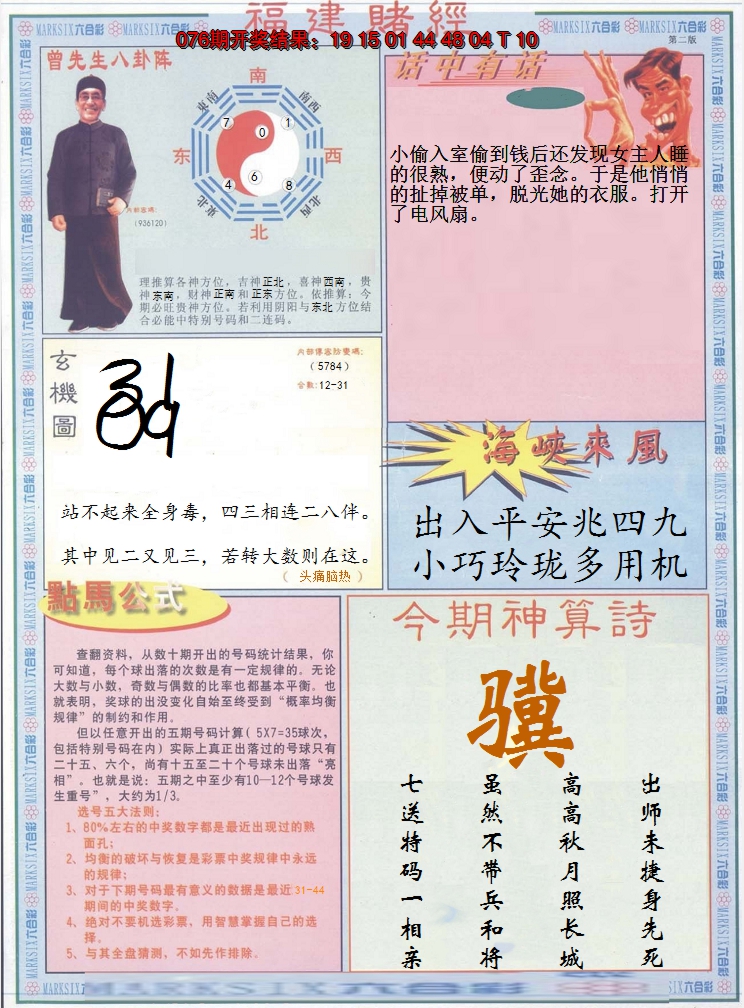 福建賭經
076期开奖结果：19 15 01 44 48 04 T 10
第二版
MARKSIX六合彩
曾先生八卦阵
南
東南
南西
7
0
1
东
西
4
6
8
東北
北西
北
內部密碼：
（936120）
理推算各神方位，吉神正北，喜神西南，贵
神东南，财神正南和正东方位。依推算：今
期必旺贵神方位。若利用阴阳与东北方位结
合必能中特别号码和二连码。
话中有话
小偷入室偷到钱后还发现女主人睡
的很熟，便动了歪念。于是他悄悄
的扯掉被单，脱光她的衣服。打开
了电风扇。
玄機圖
內部傳密防密碼：
（5784）
合数：12-31
站不起来全身毒，四三相连二八伴。
其中见二又见三，若转大数则在这。
（ 头痛脑热 ）
海峽來風
出入平安兆四九
小巧玲珑多用机
點馬公式
查翻资料，从数十期开出的号码统计结果，你
可知道，每个球出落的次数是有一定规律的。无论
大数与小数，奇数与偶数的比率也都基本平衡。也
就表明，奖球的出没变化自始至终受到“概率均衡
规律”的制约和作用。
但以任意开出的五期号码计算（5X7=35球次，
包括特别号码在内）实际上真正出落过的号球只有
二十五、六个，尚有十五至二十个号球未出落“亮
相”。也就是说：五期之中至少有10—12个号球发
生重号”，大约为1/3。
选号五大法则：
1、80%左右的中奖数字都是最近出现过的熟
面孔；
2、均衡的破坏与恢复是彩票中奖规律中永远
的规律；
3、对于下期号码最有意义的数据是最近31-44
期间的中奖数字。
4、绝对不要机选彩票，用智慧掌握自己的选
择。
5、与其全盘猜测，不如先作排除。
今期神算詩
骥
出师未捷身先死
高高秋月照长城
虽然不带兵和将
七送特码一相亲